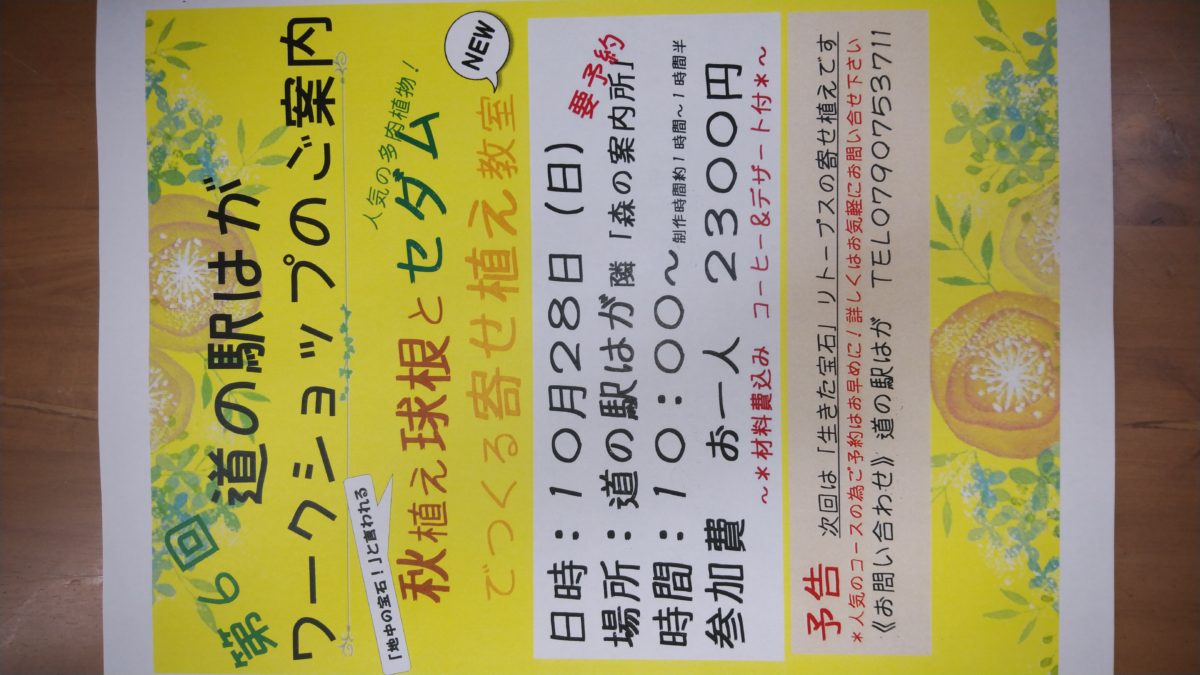 第6回
道の駅はが
ワークショップのご案内
「地中の宝石!」と言われる
人気の多肉植物!
秋植え球根とセダム
NEW
でつくる寄せ植え教室
日時:10月28日(日)
要予約
場所:道の駅はが隣「森の案内所」
時間:10:00~制作時間約1時間~1時間半
参加費 お一人 2300円
~*材料費込み コーヒー&デザート付*~
予告 次回は「生きた宝石」リトープスの寄せ植えです
*人気のコースの為ご予約はお早めに!詳しくはお気軽にお問い合せ下さい
《お問い合わせ》道の駅はが TEL0790753711